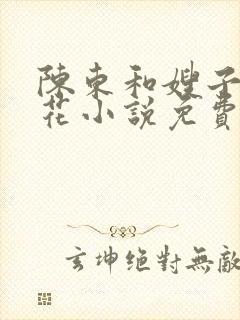 陳東和嫂子
花小說免費
玄坤絕對無敵